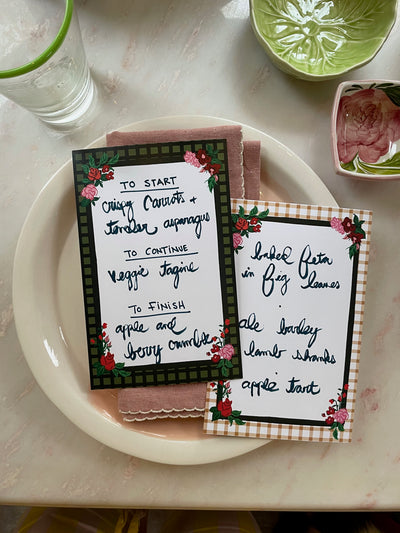 TO START
crispy Carrots +
tender asparagus
TO CONTINUE
Veggie Tagine
TO FINISH
apple and
berry crumble
baked feta
in fig
leaves
ale barley
lamb shanks
apple tart